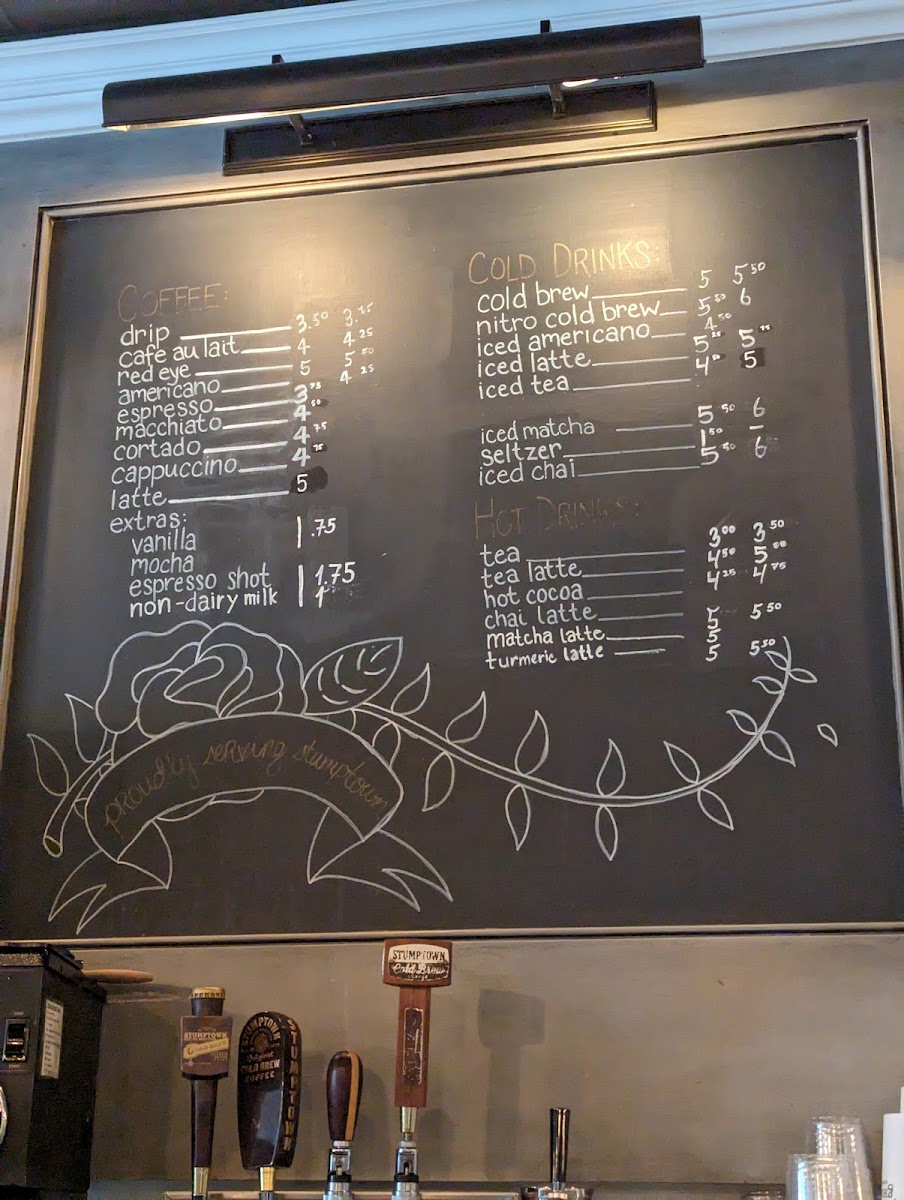 COFFEE:
drip 3.50 3.75
cafe au lait 4 4 25
red eye 5 5 50
americano 4 25
espresso 3 75
macchiato 4 50
cortado 4 75
cappuccino 4 75
latte 5
extras:
vanilla .75
mocha
espresso shot 1.75
non-dairy milk 1
COLD DRINKS:
cold brew 5 5 50
nitro cold brew 5 50 6
iced americano 4 50
iced latte 5 25 5 75
iced tea 4 50 5
iced matcha 5 50 6
seltzer 1 50 –
iced chai 5 50 6
HOT DRINKS:
tea 3 00 3 50
tea latte 4 50 5 00
hot cocoa 4 25 4 75
chai latte 5 5 50
matcha latte 5
turmeric latte 5 5 50
proudly serving stumptown
STUMPTOWN
Cold Brew
STUMPTOWN
STUMPTOWN
Original
COLD BREW
COFFEE
STUMPTOWN